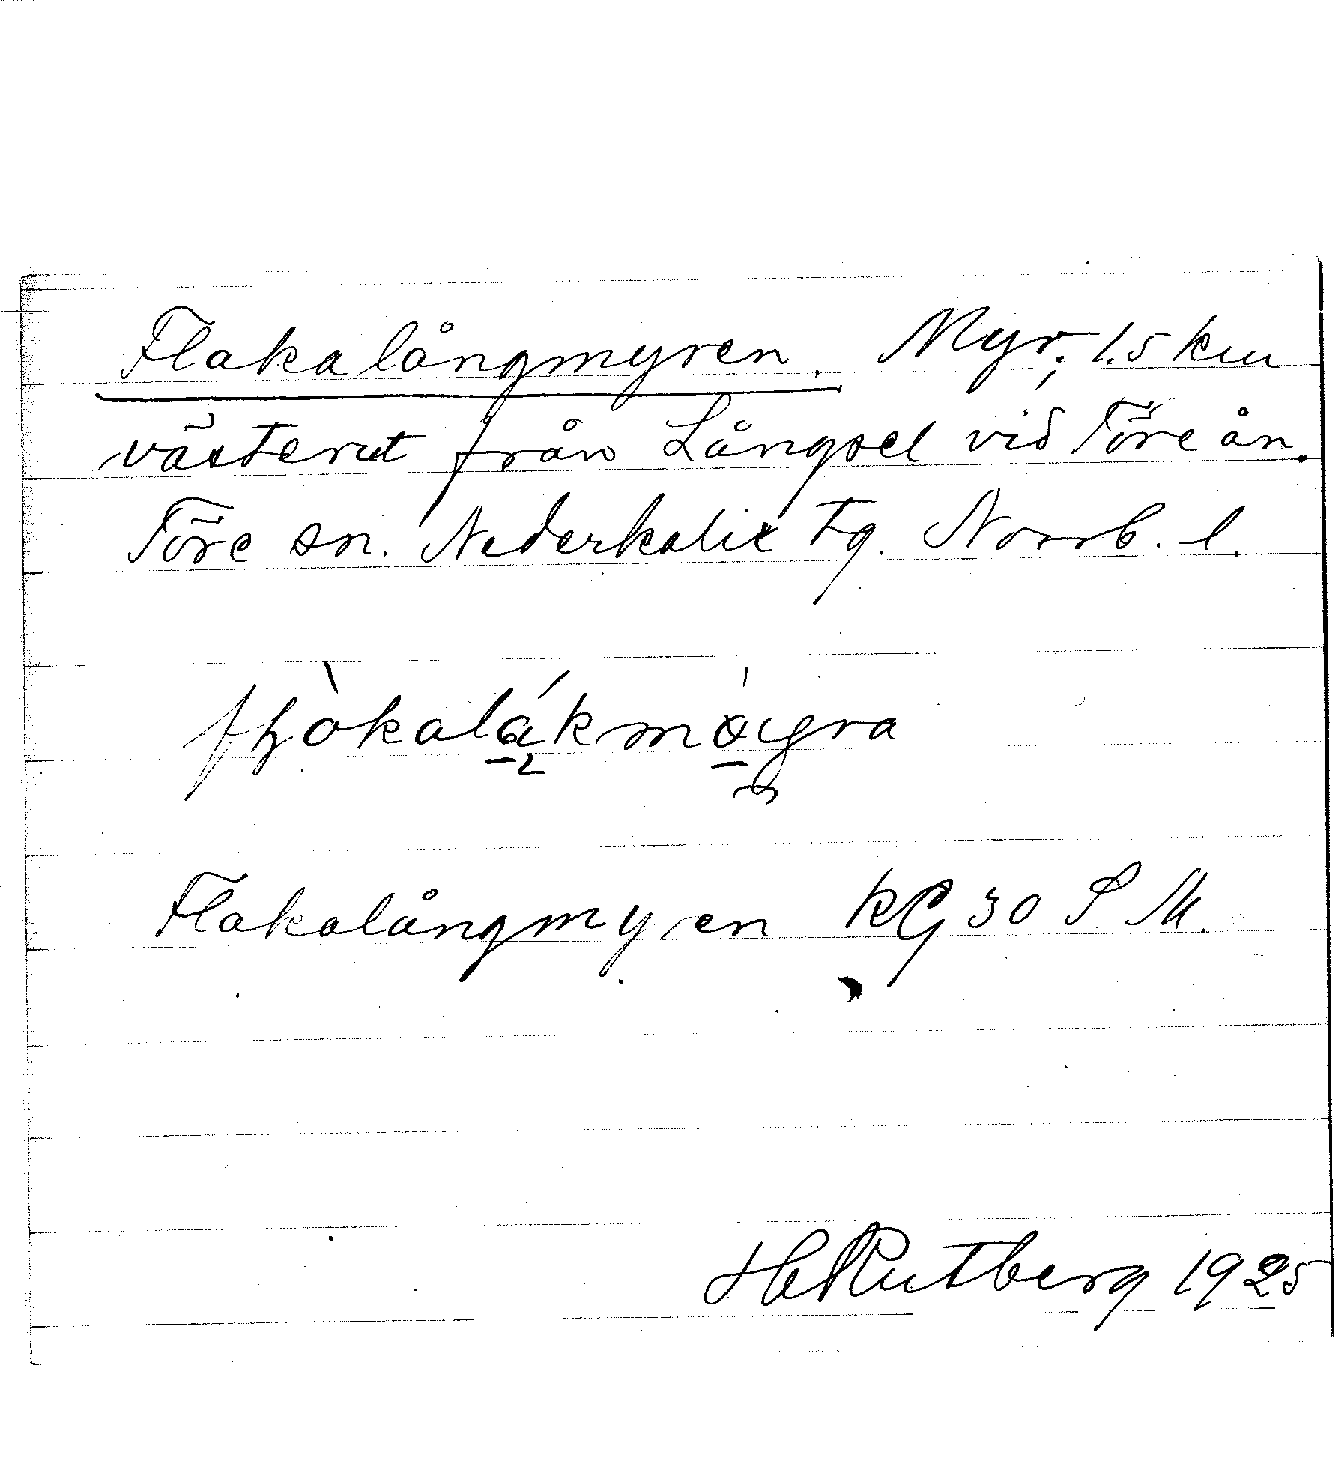 Flakalångmyren. Myr, 1.5 km
västerut från Långsel vid Töre ån.
Töre sn. Nederkalix tg. Norrb. l.
Flakalångmyren KG 30 S M.
H Rutberg 1925